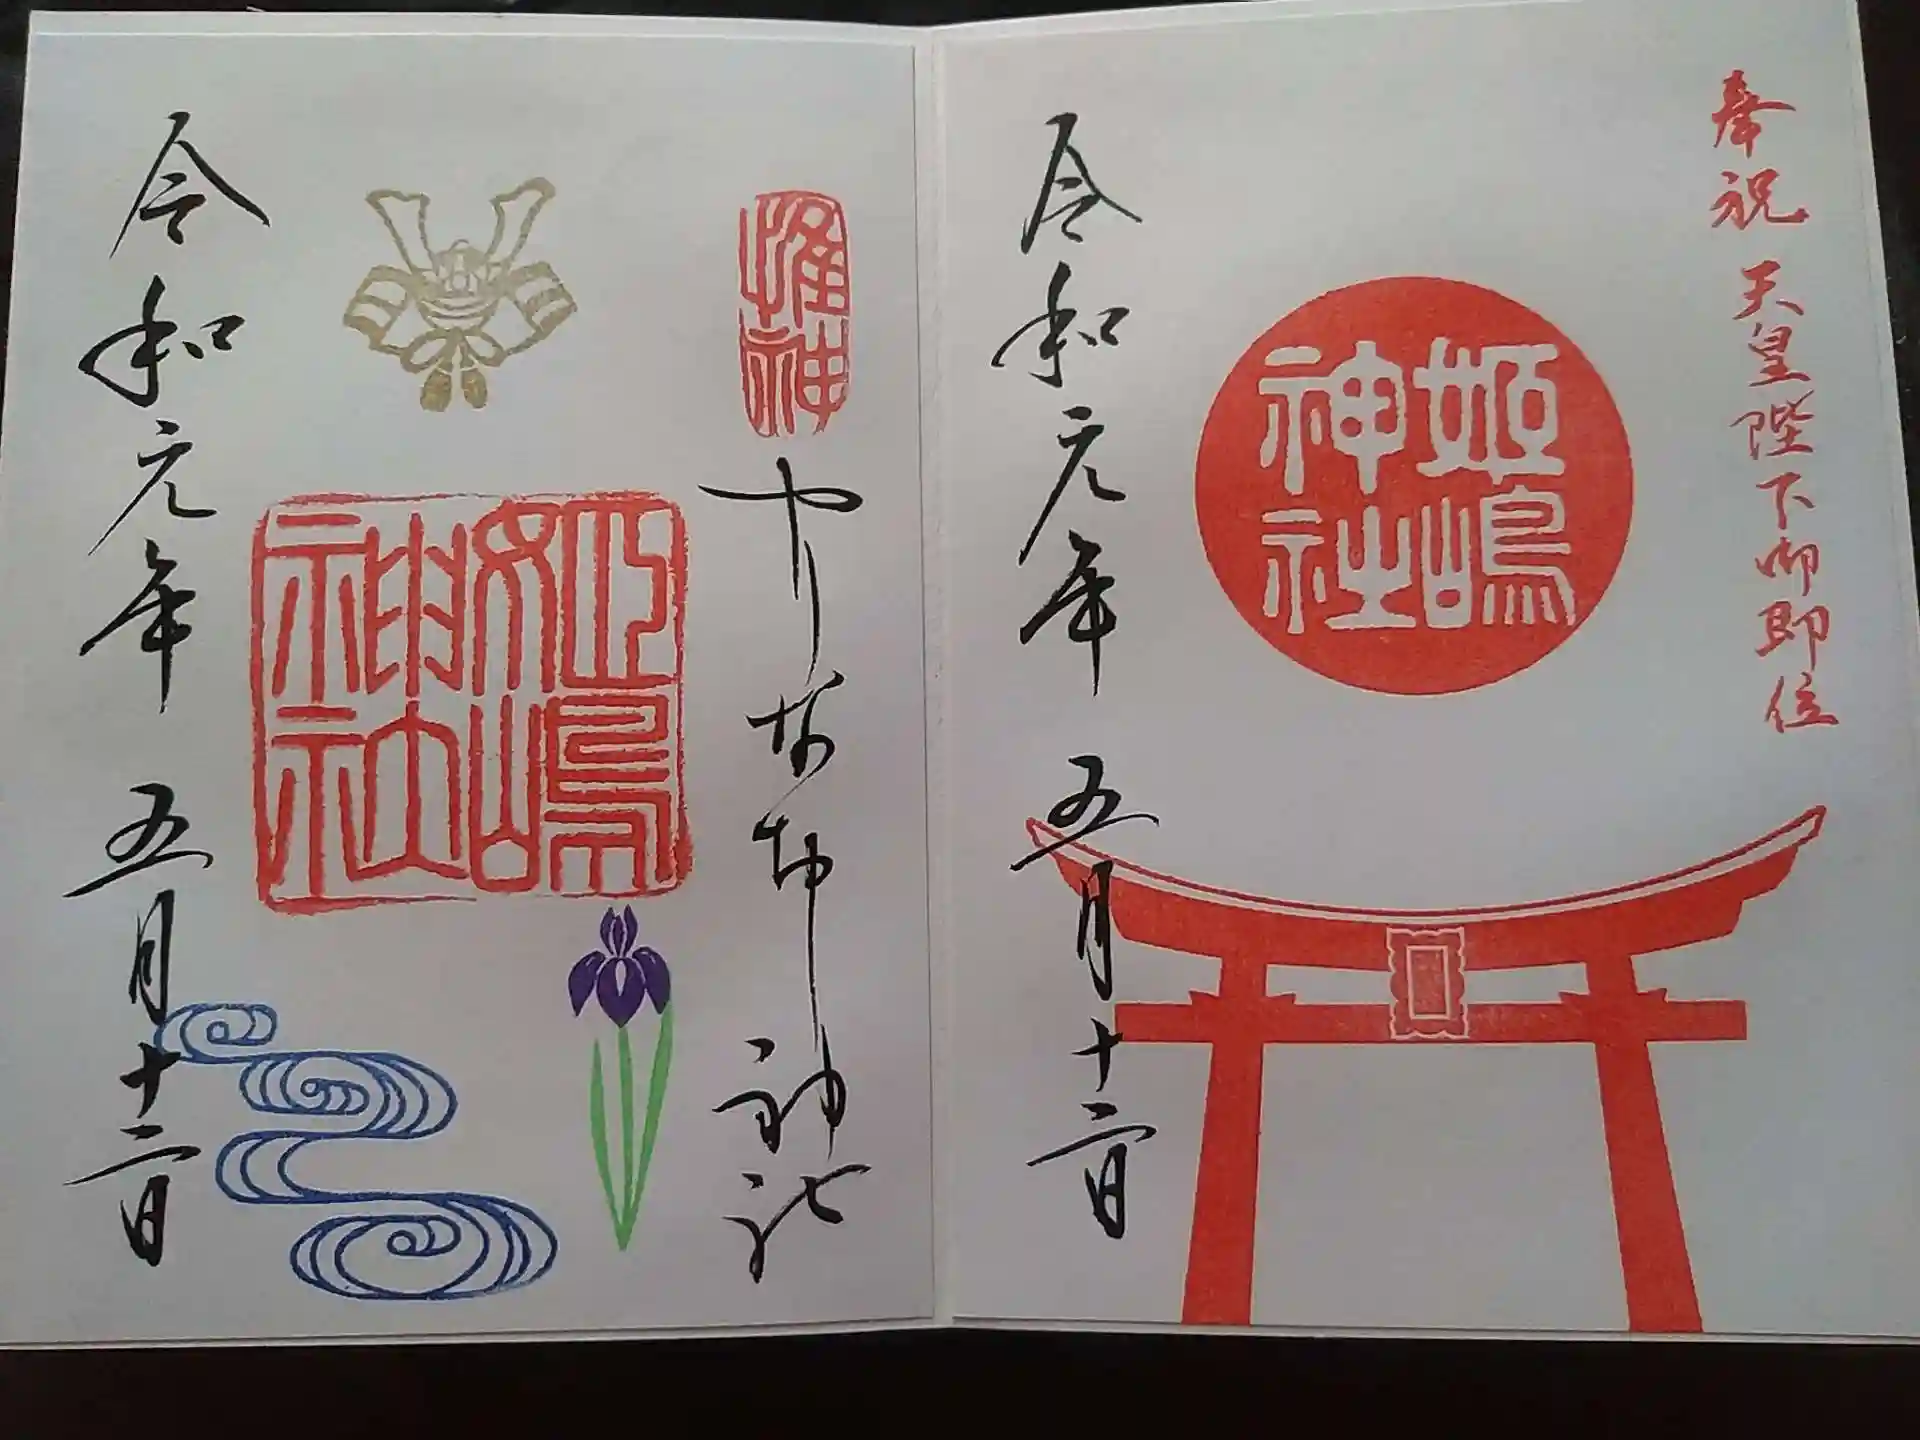 奉祝 天皇陛下御即位
姫嶋
神社
令和元年 五月十二日
惟神
やりなおし神社
姫嶋
神社
令和元年 五月十二日